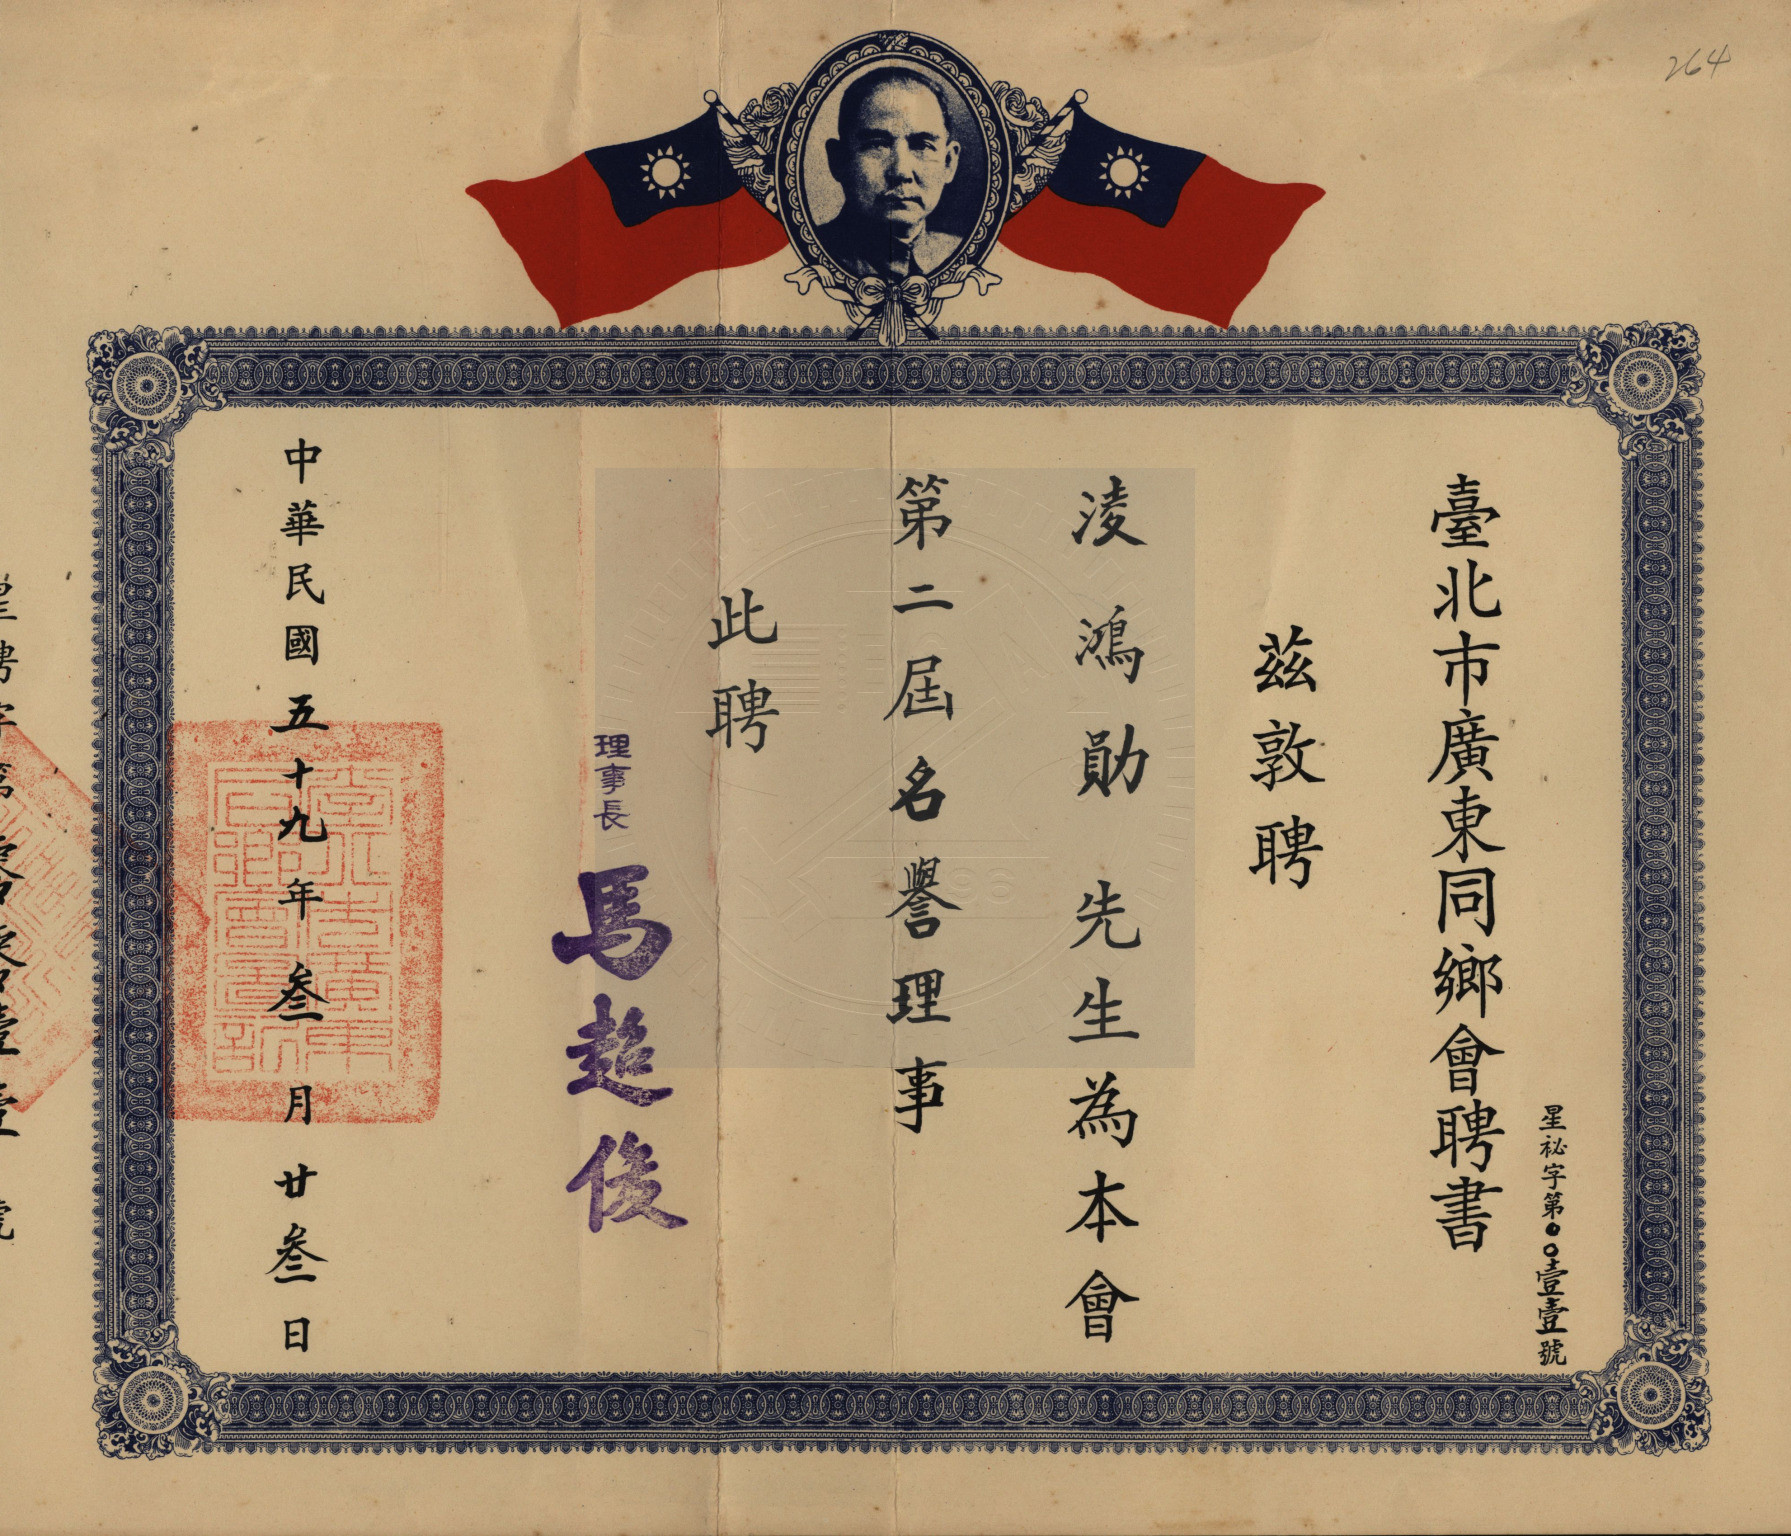 264
臺北市廣東同鄉會聘書
星祕字第00壹壹號
茲敦聘
淩鴻勛先生為本會
第二屆名譽理事
此聘
理事長馬超俊
中華民國五十九年叁月廿叁日
臺北市廣東同鄉會圖記